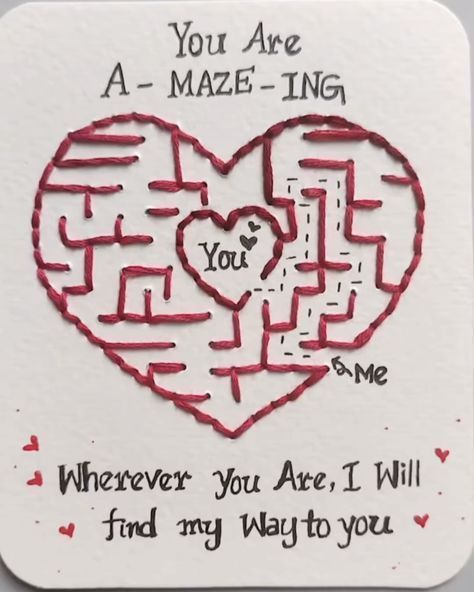 You Are
A - MAZE - ING
You
Me
Wherever you Are, I Will
find my Way to you